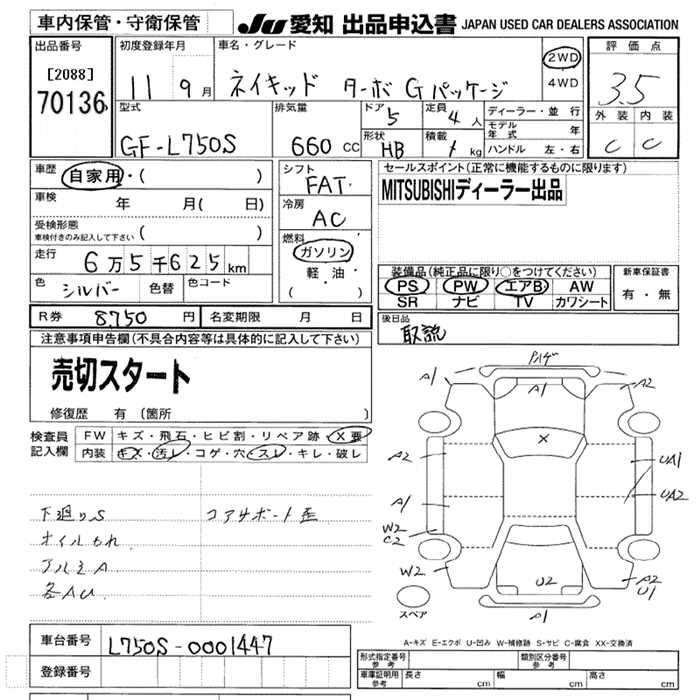 車内保管・守衛保管
JU 愛知 出品申込書 JAPAN USED CAR DEALERS ASSOCIATION
出品番号
[2088]
70136
初度登録年月
11 9月
車名・グレード
ネイキッド ターボ Gパッケージ
2WD
4WD
評価点
3.5
外装 内装
C C
型式
GF-L750S
排気量
660 CC
ドア 5
定員 4人
形状 HB
積載 kg
ディーラー・並行
モデル年式 年
ハンドル 左・右
車歴 自家用・( )
車検 年 月( 日)
受検形態
車検付きのみ記入して下さい ( )
走行 6万5千625km
色 シルバー 色替 色コード
シフト
FAT
冷房
AC
燃料
ガソリン
軽油・
( )
セールスポイント(正常に機能するものに限ります)
MITSUBISHIディーラー出品
装備品(純正品に限り○をつけてください)
PS PW エアB AW
SR ナビ TV カワシート
新車保証書
有・無
R券 8,750円 名変期限 月 日
後日品
取説
注意事項申告欄(不具合内容等は具体的に記入して下さい)
売切スタート
修復歴 有 (箇所 )
検査員
記入欄
FW キズ・飛石・ヒビ割・リペア跡・X要
内装 キズ・汚レ・コゲ・穴・スレ・キレ・破レ
下廻りS
コアサポート歪
オイルもれ
アルミA
各AU
A1 A1 A2
X
A2 UA1
A1 UA2
W2
C2
W2 U2 A2
U1
A1
スペア
A-キズ E-エクボ U-凹み W-補修跡 S-サビ C-腐食 XX-交換済
車台番号 L750S-0001447
登録番号
形式指定番号 参考
類別区分番号 参考
車庫証明用 参考 長さ cm 幅 cm 高さ cm